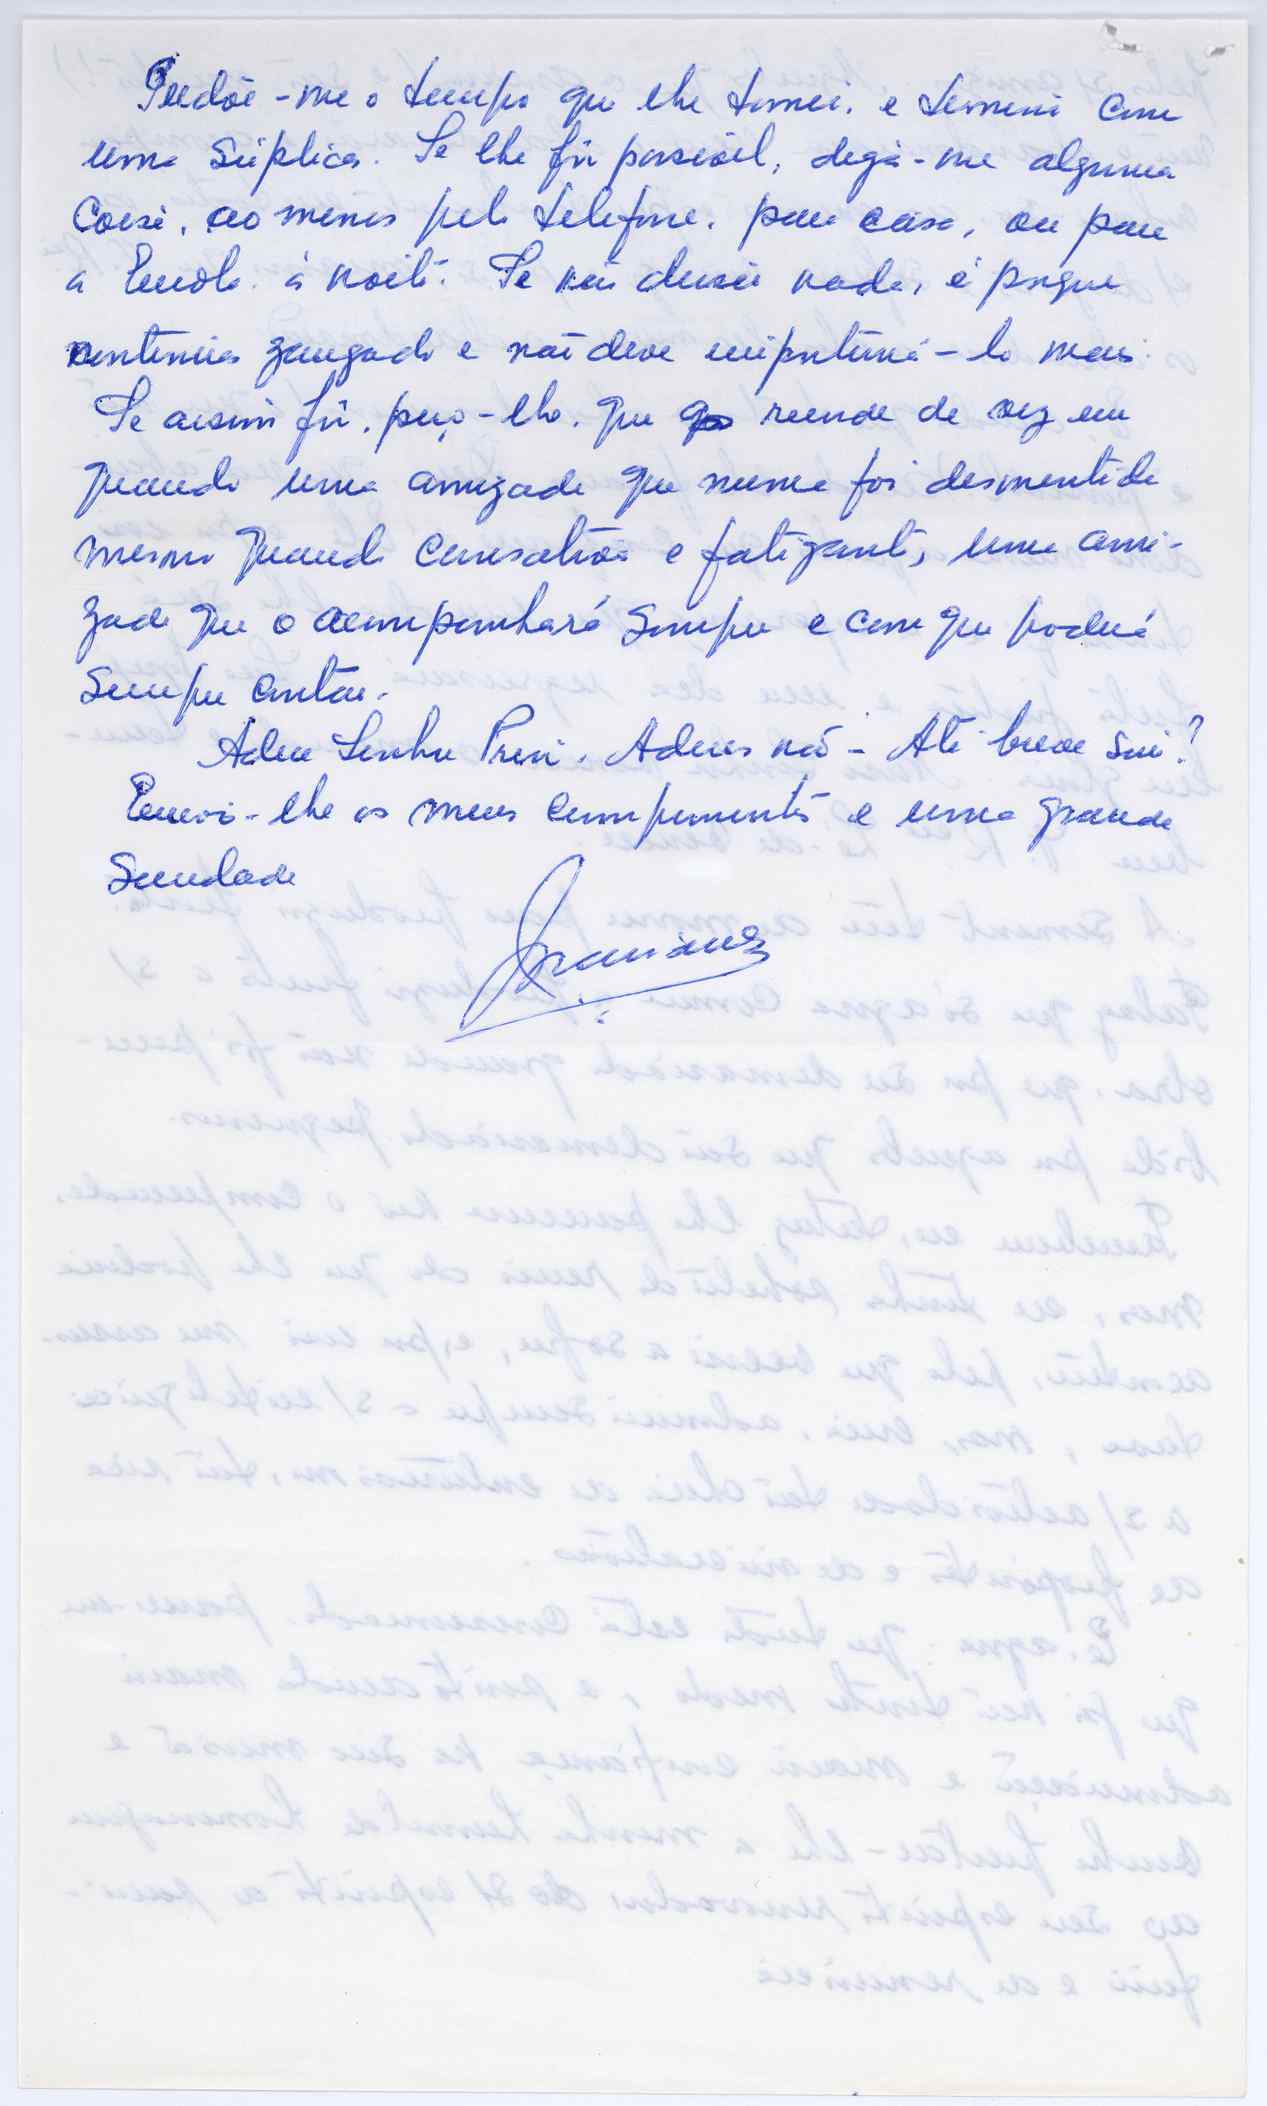 Perdôe-me o tempo que lhe tomei. e termino com
uma súplica. Se lhe fôr possível, diga-me alguma
coisa, ao menos pelo telefone. para casa, ou para
a Escola à noite. Se não disser nada, é porque
continua zangado e não devo importuná-lo mais.
Se assim fôr, peço-lho, que recorde de vez em
quando uma amizade que nunca foi desmentida
mesmo quando cansativa e fatigante, uma ami-
zade que o acompanhará sempre e com que poderá
sempre contar.
Adeus Senhor Adeus não - Até breve sim?
Envio-lhe os meus cumprimentos e uma grande
Saudade